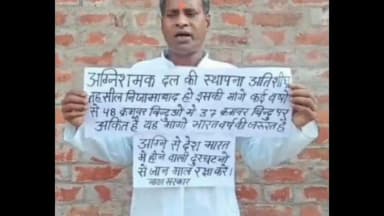 अग्निशमक दल की स्थापना अतिशीघ्र
तहसील निजामाबाद हो इसकी मांगे कई वर्षो
से 48 क्रमवर बिन्दुओ मे 37 क्रमवर बिन्दु पर
अंकित है यह मांगे भारतवर्ष की जरूरत है
अग्नि से देश भारत
मे होने वाली दुरघटनो
से जान माल रक्षा करे।
भारत सरकार